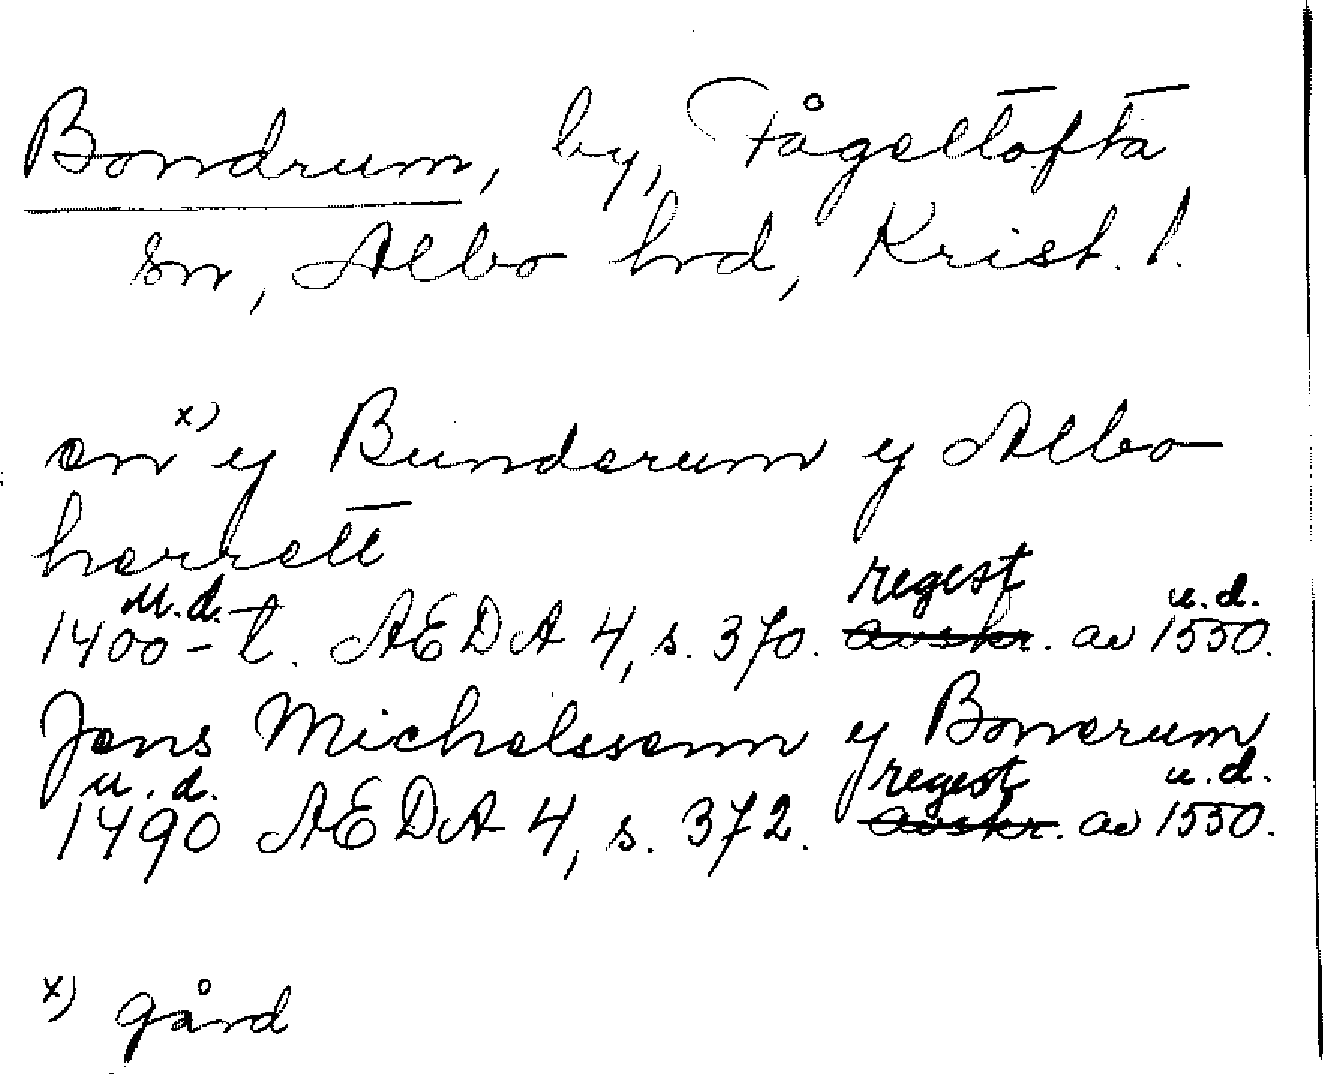 Bondrum, by, Fågeltofta
sn, Albo hrd, Krist. l.
en x) y Bunderum y Albo
herrett
1400-t. u.d. AEDA 4, s. 370. avskr. regest av 1550. u.d.
Jens Michelssenn y Bonerum
1490 u.d. AEDA 4, s. 372. avskr. regest av 1550. u.d.
x) gård